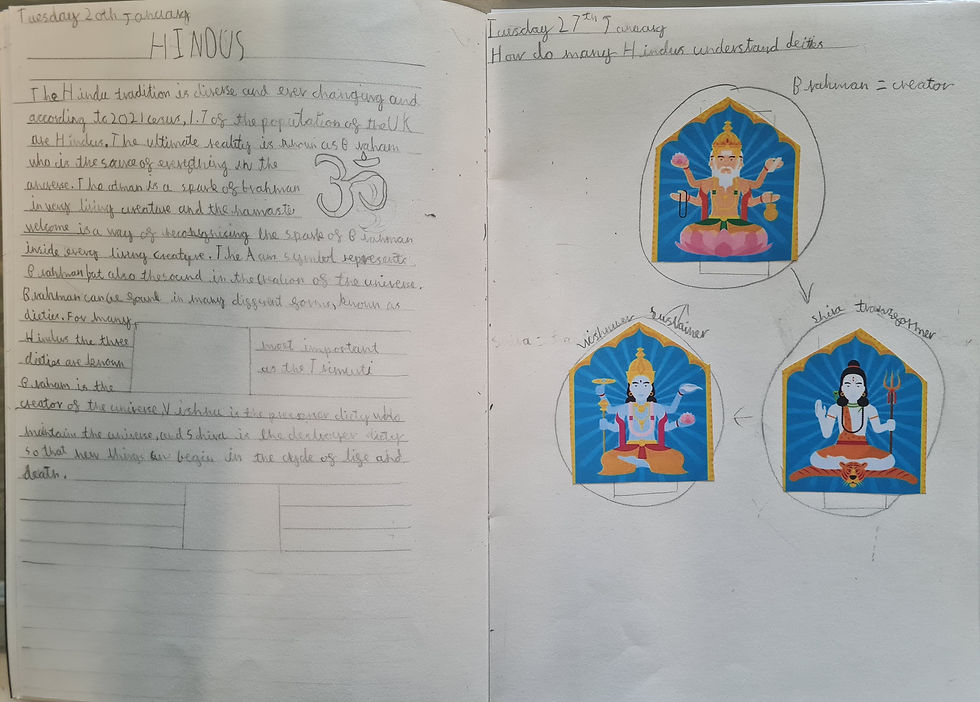 Tuesday 20th January
HINDUS
The Hindu tradition is diverse and ever changing and
according to 2021 cesus, 1.7 of the population of the UK
are Hindus. The ultimate reality is known as Braham
who is the source of everything in the
universe. The atman is a spark of brahman
in very living creature and the namaste
welcome is a way of the spark of Brahman
inside every living creature. The Aam symbol represents
Brahman, but also the sound in the creation of the universe.
Brahman can be in many different forms, known as
dieties. For many
Hindus the three
dieties are known
Braham is the
most important
as the Trimuti
creator of the universe, Vishnu is the preserver diety who
maintain the universe, and Shiva is the destroyer diety
so that new things can begin in the cycle of life and
death.
Tuesday 27th January
How do many Hindus understand deities
Brahman = creator
sustainer
shiva